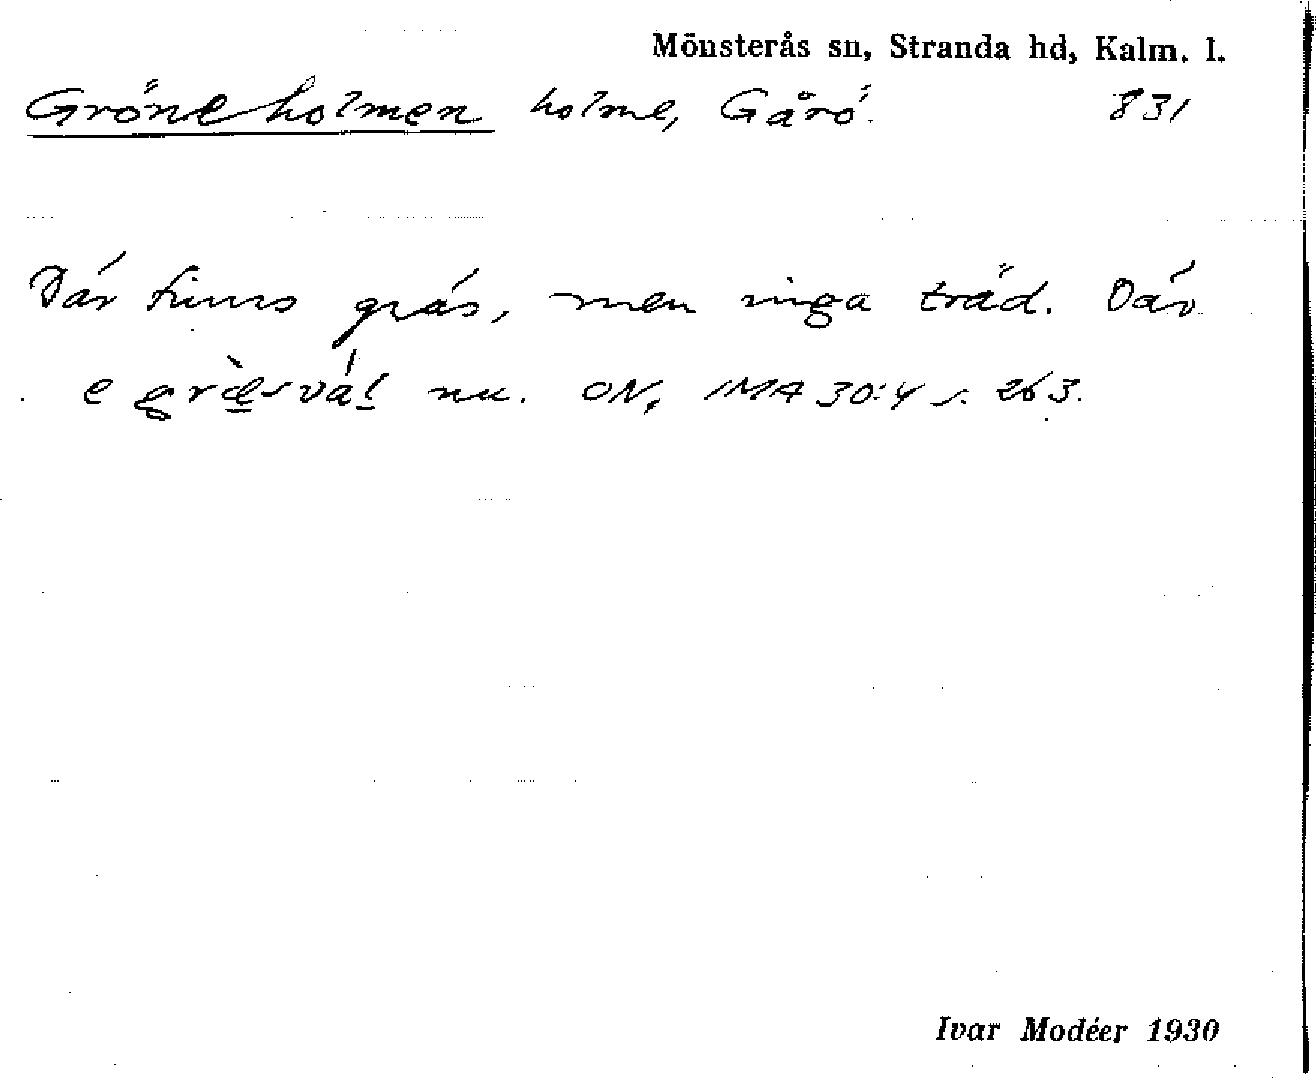 Mönsterås sn, Stranda hd, Kalm. l.
Gröneholmen holme, Gårö. 831
Där finns gräs, men inga träd. Där
e græ̀svál nu. ON, IMA 30:4 s. 263.
Ivar Modéer 1930